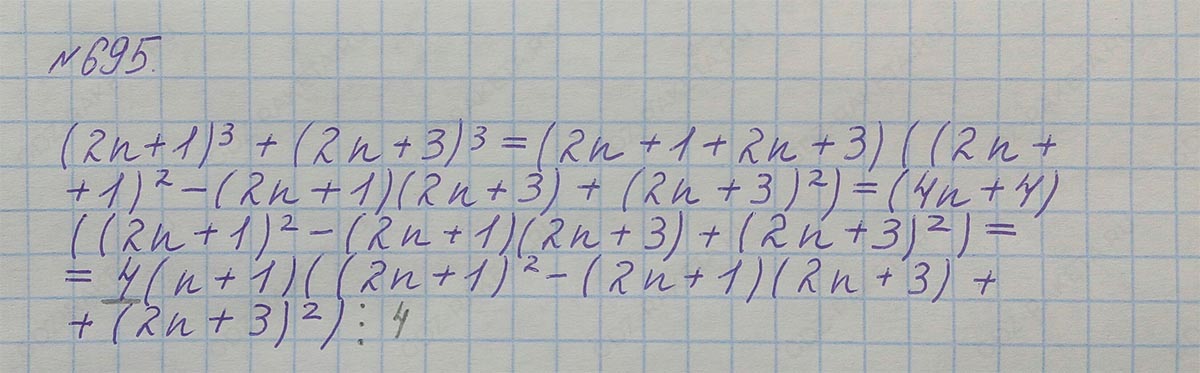 №695.
(2n+1)³ + (2n+3)³ = (2n+1+2n+3)((2n+
+1)² - (2n+1)(2n+3) + (2n+3)²) = (4n+4)
((2n+1)² - (2n+1)(2n+3) + (2n+3)²) =
= 4(n+1)((2n+1)² - (2n+1)(2n+3) +
+ (2n+3)²) ⋮ 4